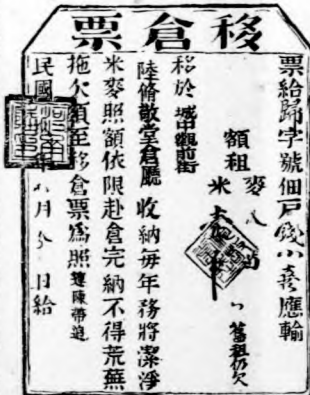 移倉票
票給歸字號佃戶錢小喜應輸
額租
麥
米
舊租仍欠
移於城中觀前街
陸脩敬堂倉廳收納每年務將潔淨
米麥照額依限赴倉完納不得荒蕪
拖欠須至移倉票爲照 蘧陳帶追
民國 年八月 日給